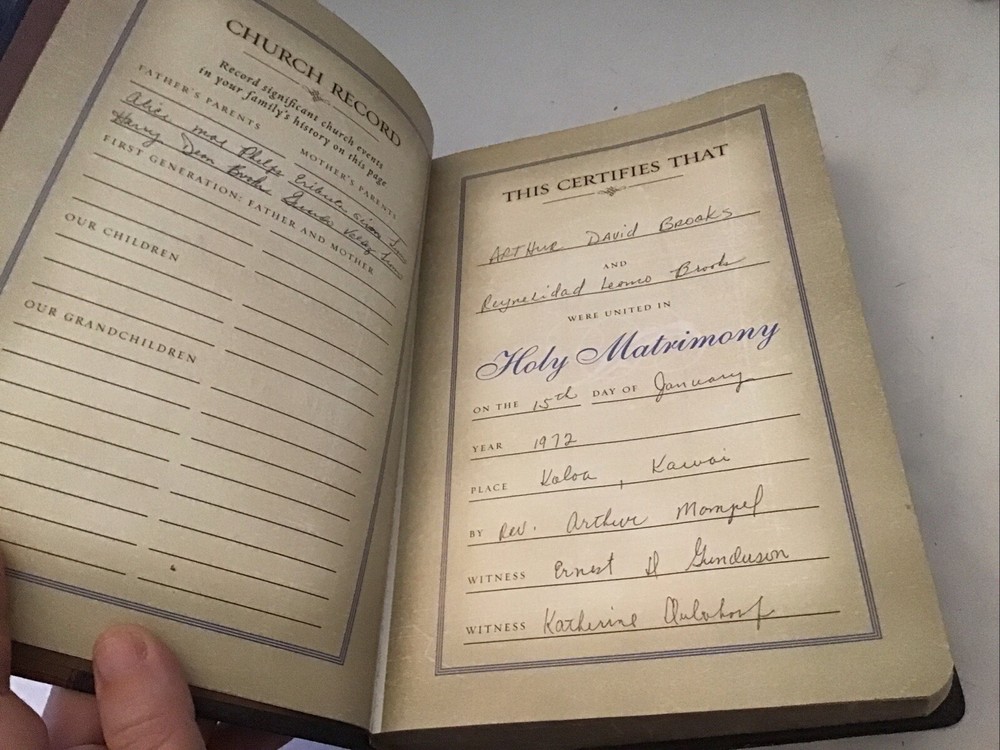 CHURCH RECORD
Record significant church events
in your family's history on this page
FATHER'S PARENTS
MOTHER'S PARENTS
Alice mae Phelps
Harry Dean Brooks
FIRST GENERATION: FATHER AND MOTHER
OUR CHILDREN
OUR GRANDCHILDREN
THIS CERTIFIES THAT
ARTHUR DAVID BROOKS
AND
Reynelidad Leomo Brooks
WERE UNITED IN
Holy Matrimony
ON THE 15th DAY OF January
YEAR 1972
PLACE Koloa, Kawai
BY Rev. Arthur Mompel
WITNESS Ernest D Gunduson
WITNESS Katherine